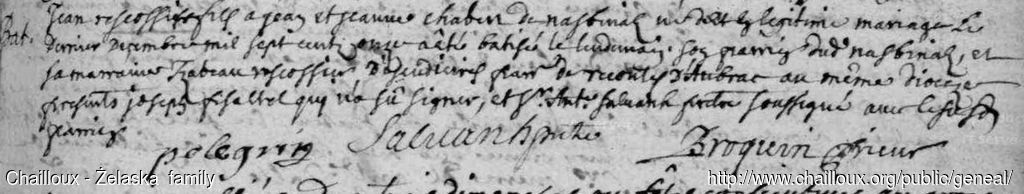 Bat.
Jean rescossier fils a jean et jeanne chabert de nasbinals né de leg legitime mariage le
dernier decembre mil sept cents onze a été batisé le lendemain son parrin dud nasbinals, et
sa marraine Izabeau rescossier de par de recoules d'Aubrac au même diocese
presents joseph qui n'a sû signer, et Sr. Ant. Saluanh pretre soussigné avec led
parrin
polegrin Saluanh pretre Broquin Prieur
Chailloux - Żelaska family
http://www.chailloux.org/public/geneal/